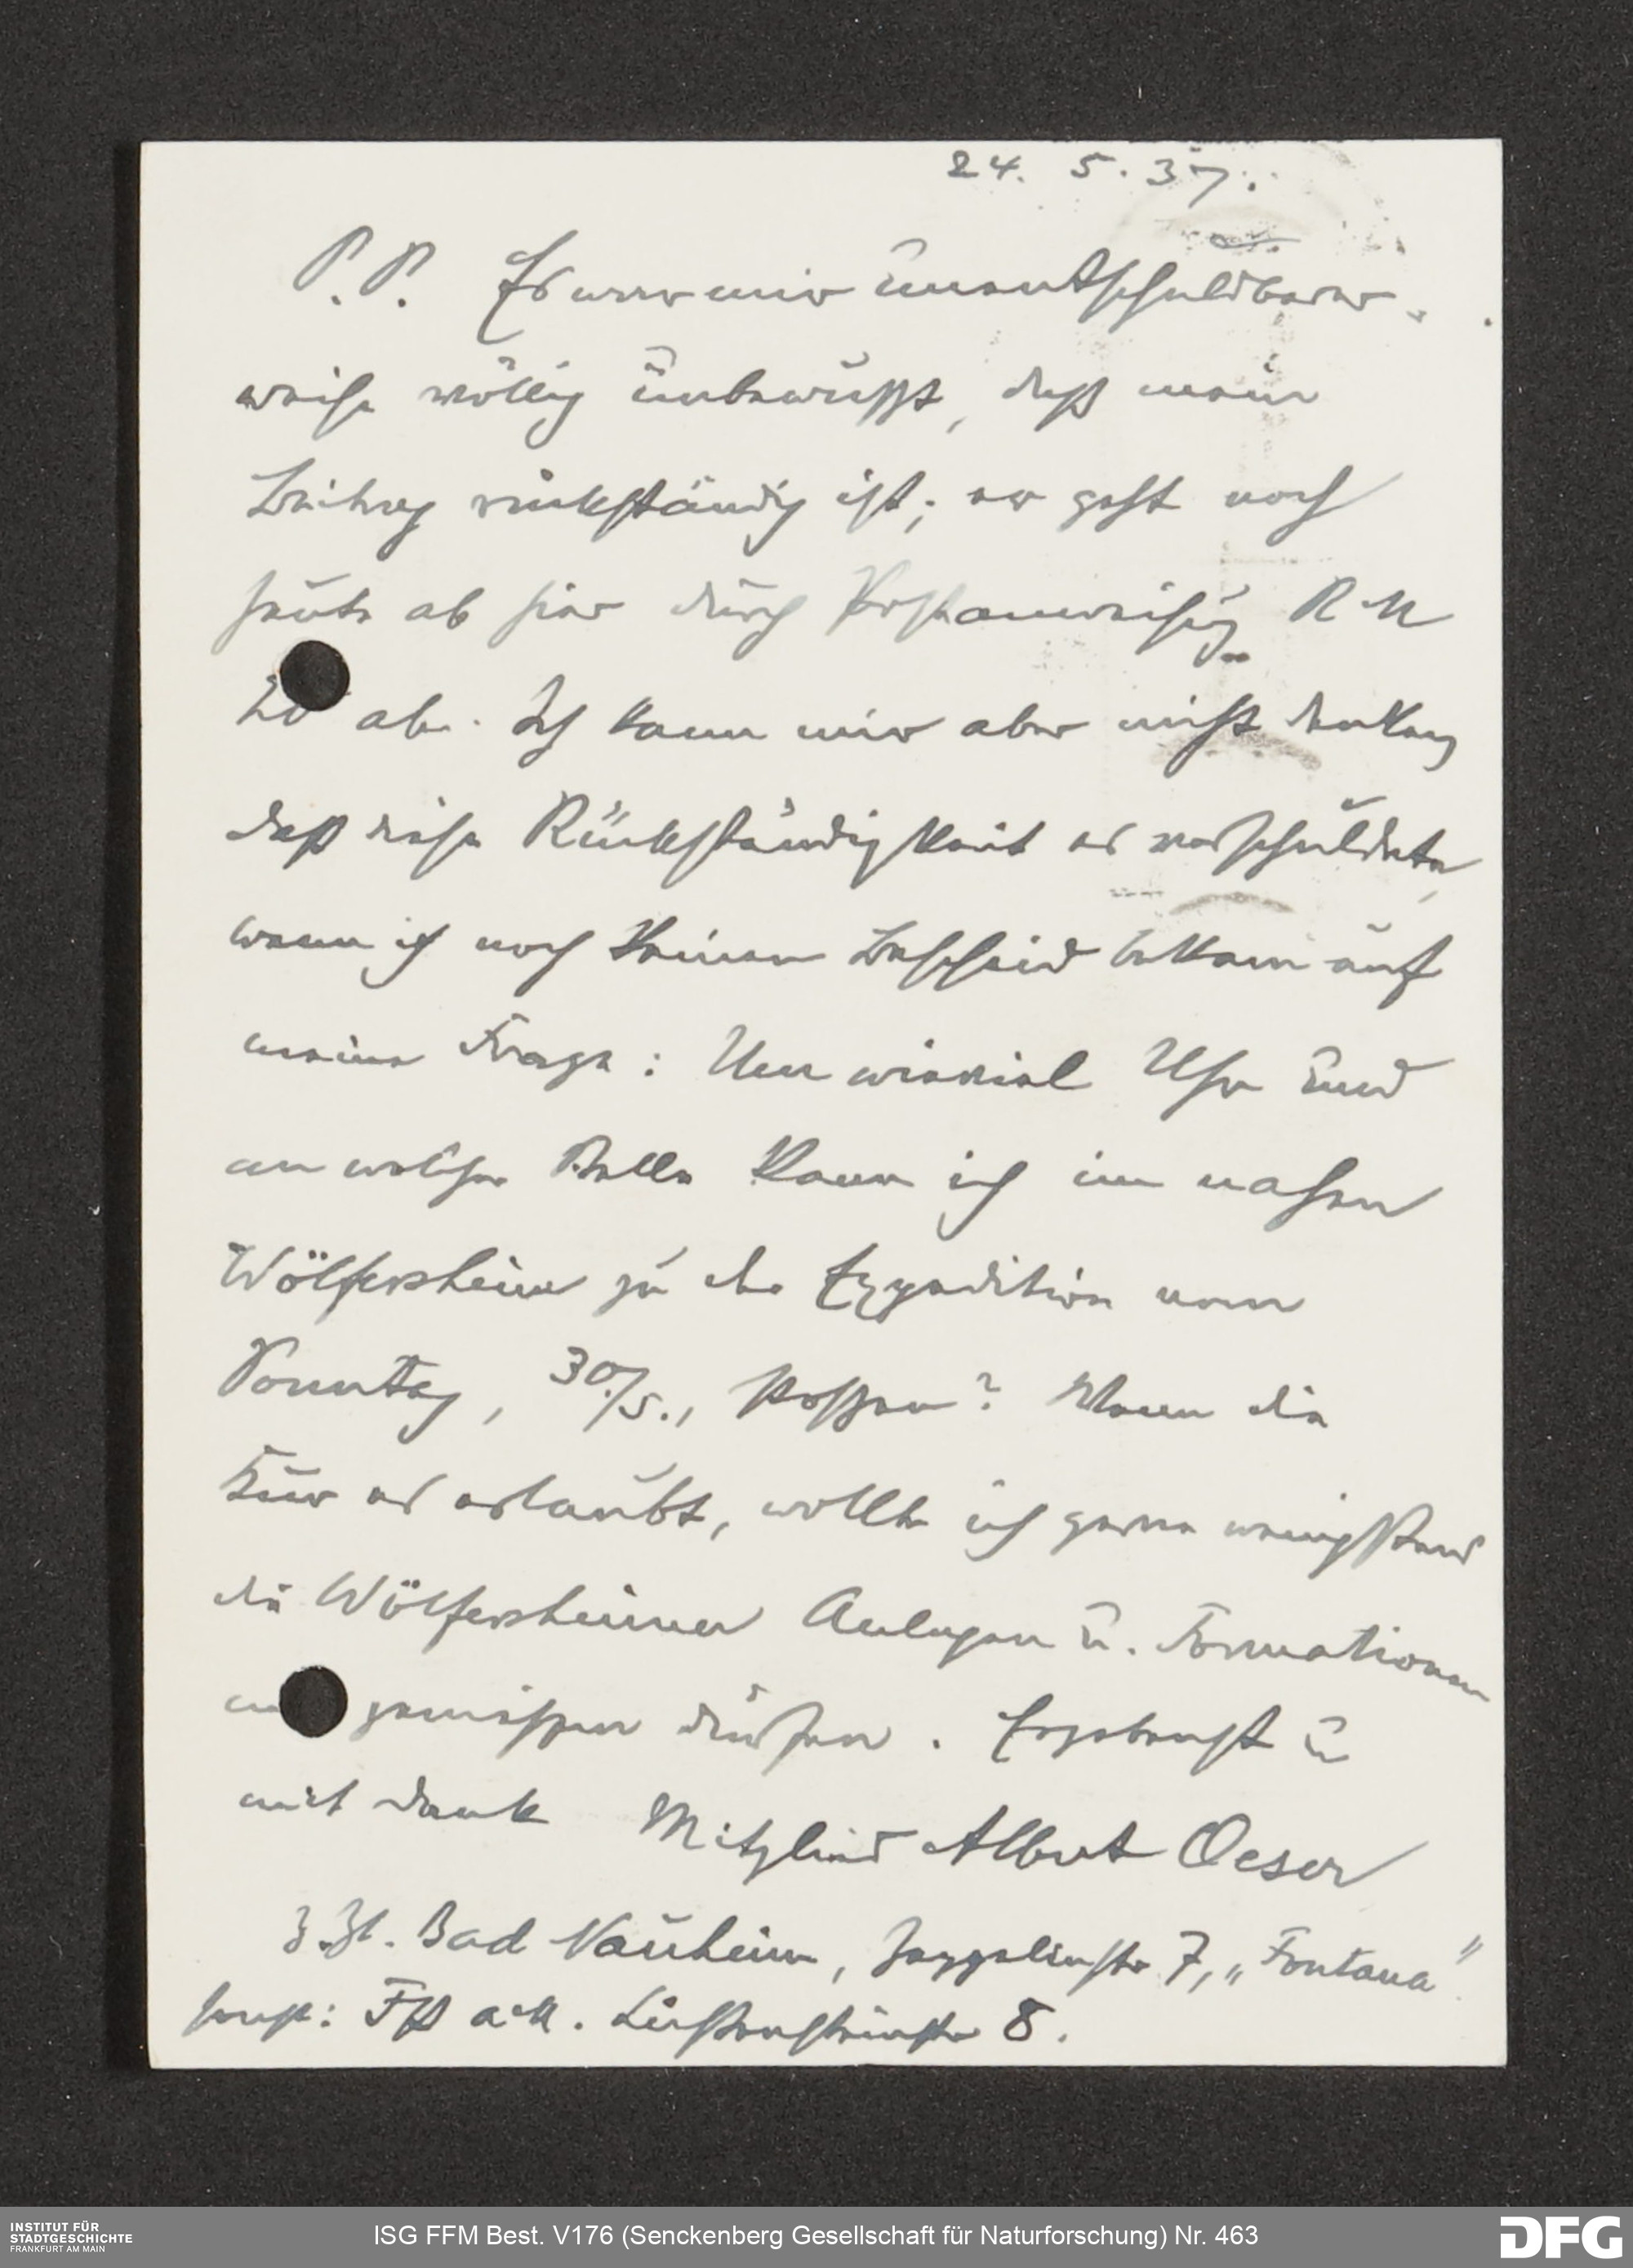 24. 5. 37.
P. P. Es war mir unentschuldbarer-
weise völlig unbewußt, daß mein
Beitrag rückständig ist; er geht noch
heute ab hier durch Postanweisung R M
20 ab. Ich kann mir aber nicht denken
daß diese Rückständigkeit es verschuldete,
wenn ich noch keinen Bescheid bekam auf
meine Frage: Um wieviel Uhr und
an welcher Stelle kann ich im nahen
Wölfersheim zu der Expedition vom
Sonntag, 30./5., stossen? Wenn die
Kur es erlaubt, wollte ich gerne wenigstens
die Wölfersheimer Anlagen u. Formationen
geniessen dürfen. Ergebenst u
mit Dank Mitglied Albert Oeser
z. Zt. Bad Nauheim, Zeppelinstr 7, „Fontana"
sonst: Fft a. M. Liechtensteinstr 8.
INSTITUT FÜR
STADTGESCHICHTE
FRANKFURT AM MAIN
ISG FFM Best. V176 (Senckenberg Gesellschaft für Naturforschung) Nr. 463
DFG